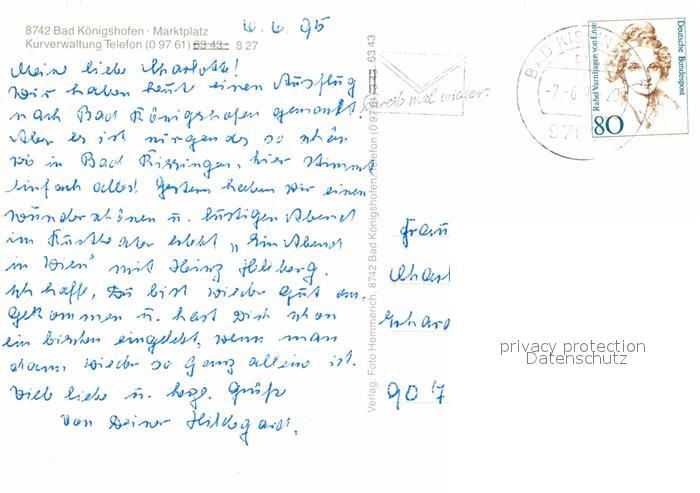 6.6.95
8742 Bad Königshofen · Marktplatz
Kurverwaltung Telefon (0 97 61) 63 43 8 27
Meine liebe Charlotte!
Wir haben heut einen Ausflug
nach Bad Königshofen gemacht.
Aber es ist nirgends so schön
wie in Bad Kissingen, hier stimmt
einfach alles! Gestern haben wir einen
wunderschönen u. lustigen Abend
im Kurtheater erlebt „Ein Abend
in Wien" mit Heinz
Ich hoffe, Du bist wieder gut an-
gekommen u. hast Dich schon
ein bischen eingelebt, wenn man
dann wieder so ganz alleine ist.
Viele liebe u. herzl. Grüße
von Deiner Hildegard.
Verlag: Foto Hemmerich, 8742 Bad Königshofen, Telefon (0 97 61) 63 43
Schreib mal wieder.
BAD KISSINGEN
-7.-6.
970
Rahel Varnhagen von Ense
Deutsche Bundespost
80
Frau
Charl
Erhard
90 7
privacy protection
Datenschutz